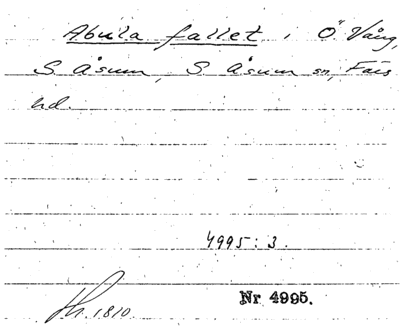 Abula fallet, i Ö Vång,
S Åsum, S Åsum sn, Färs
hd.
4995:3.
1810.
Nr 4995.